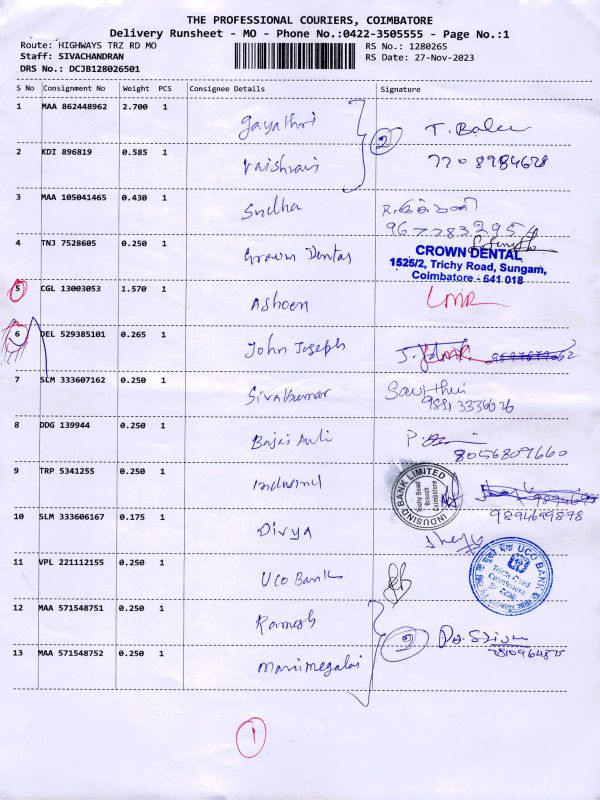 THE PROFESSIONAL COURIERS, COIMBATORE
Delivery Runsheet - MO - Phone No.:0422-3505555 - Page No.:1
Route: HIGHWAYS TRZ RD MO
RS No.: 1280265
Staff: SIVACHANDRAN
RS Date: 27-Nov-2023
DRS No.: DCJB128026501
S No Consignment No Weight PCS Consignee Details Signature
1 MAA 862448962 2.700 1 Gayathri T. Balu
2
2 KDI 896819 0.585 1 Vaishnavi 7708984628
3 MAA 105041465 0.430 1 Sudha
9677832954
4 TNJ 7528605 0.250 1 Crown Dental
CROWN DENTAL
1525/2, Trichy Road, Sungam,
Coimbatore - 641 018
5 CGL 13003053 1.570 1 Ashoen LMR
6 DEL 529385101 0.265 1 John Joseph LMR
7 SLM 333607162 0.250 1 Sivakumar
8 DDG 139944 0.250 1 Bajaj
8056809660
9 TRP 5341255 0.250 1 Indusind
INDUSIND BANK LIMITED
Trichy Road
Branch
Coimbatore
9894699898
10 SLM 333606167 0.175 1 Divya
11 VPL 221112155 0.250 1 UCO Bank
UCO BANK
Trichy Road
Coimbatore
12 MAA 571548751 0.250 1 Ramesh
13 MAA 571548752 0.250 1 Manimegalai
1